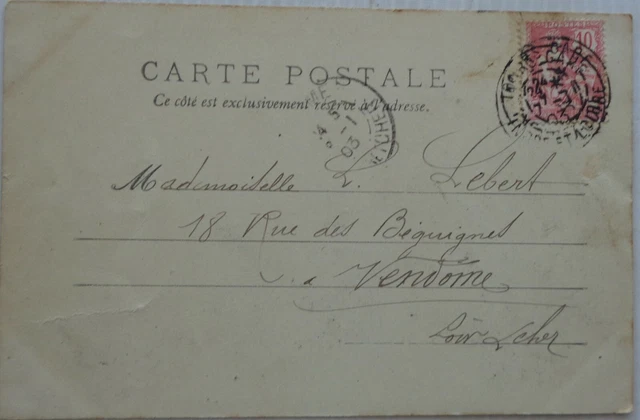 POSTES
10
CARTE POSTALE
Ce côté est exclusivement réservé à l'adresse.
03
Mademoiselle L. Lebert
18 Rue des Béguignes
à Vendôme
Loir & cher